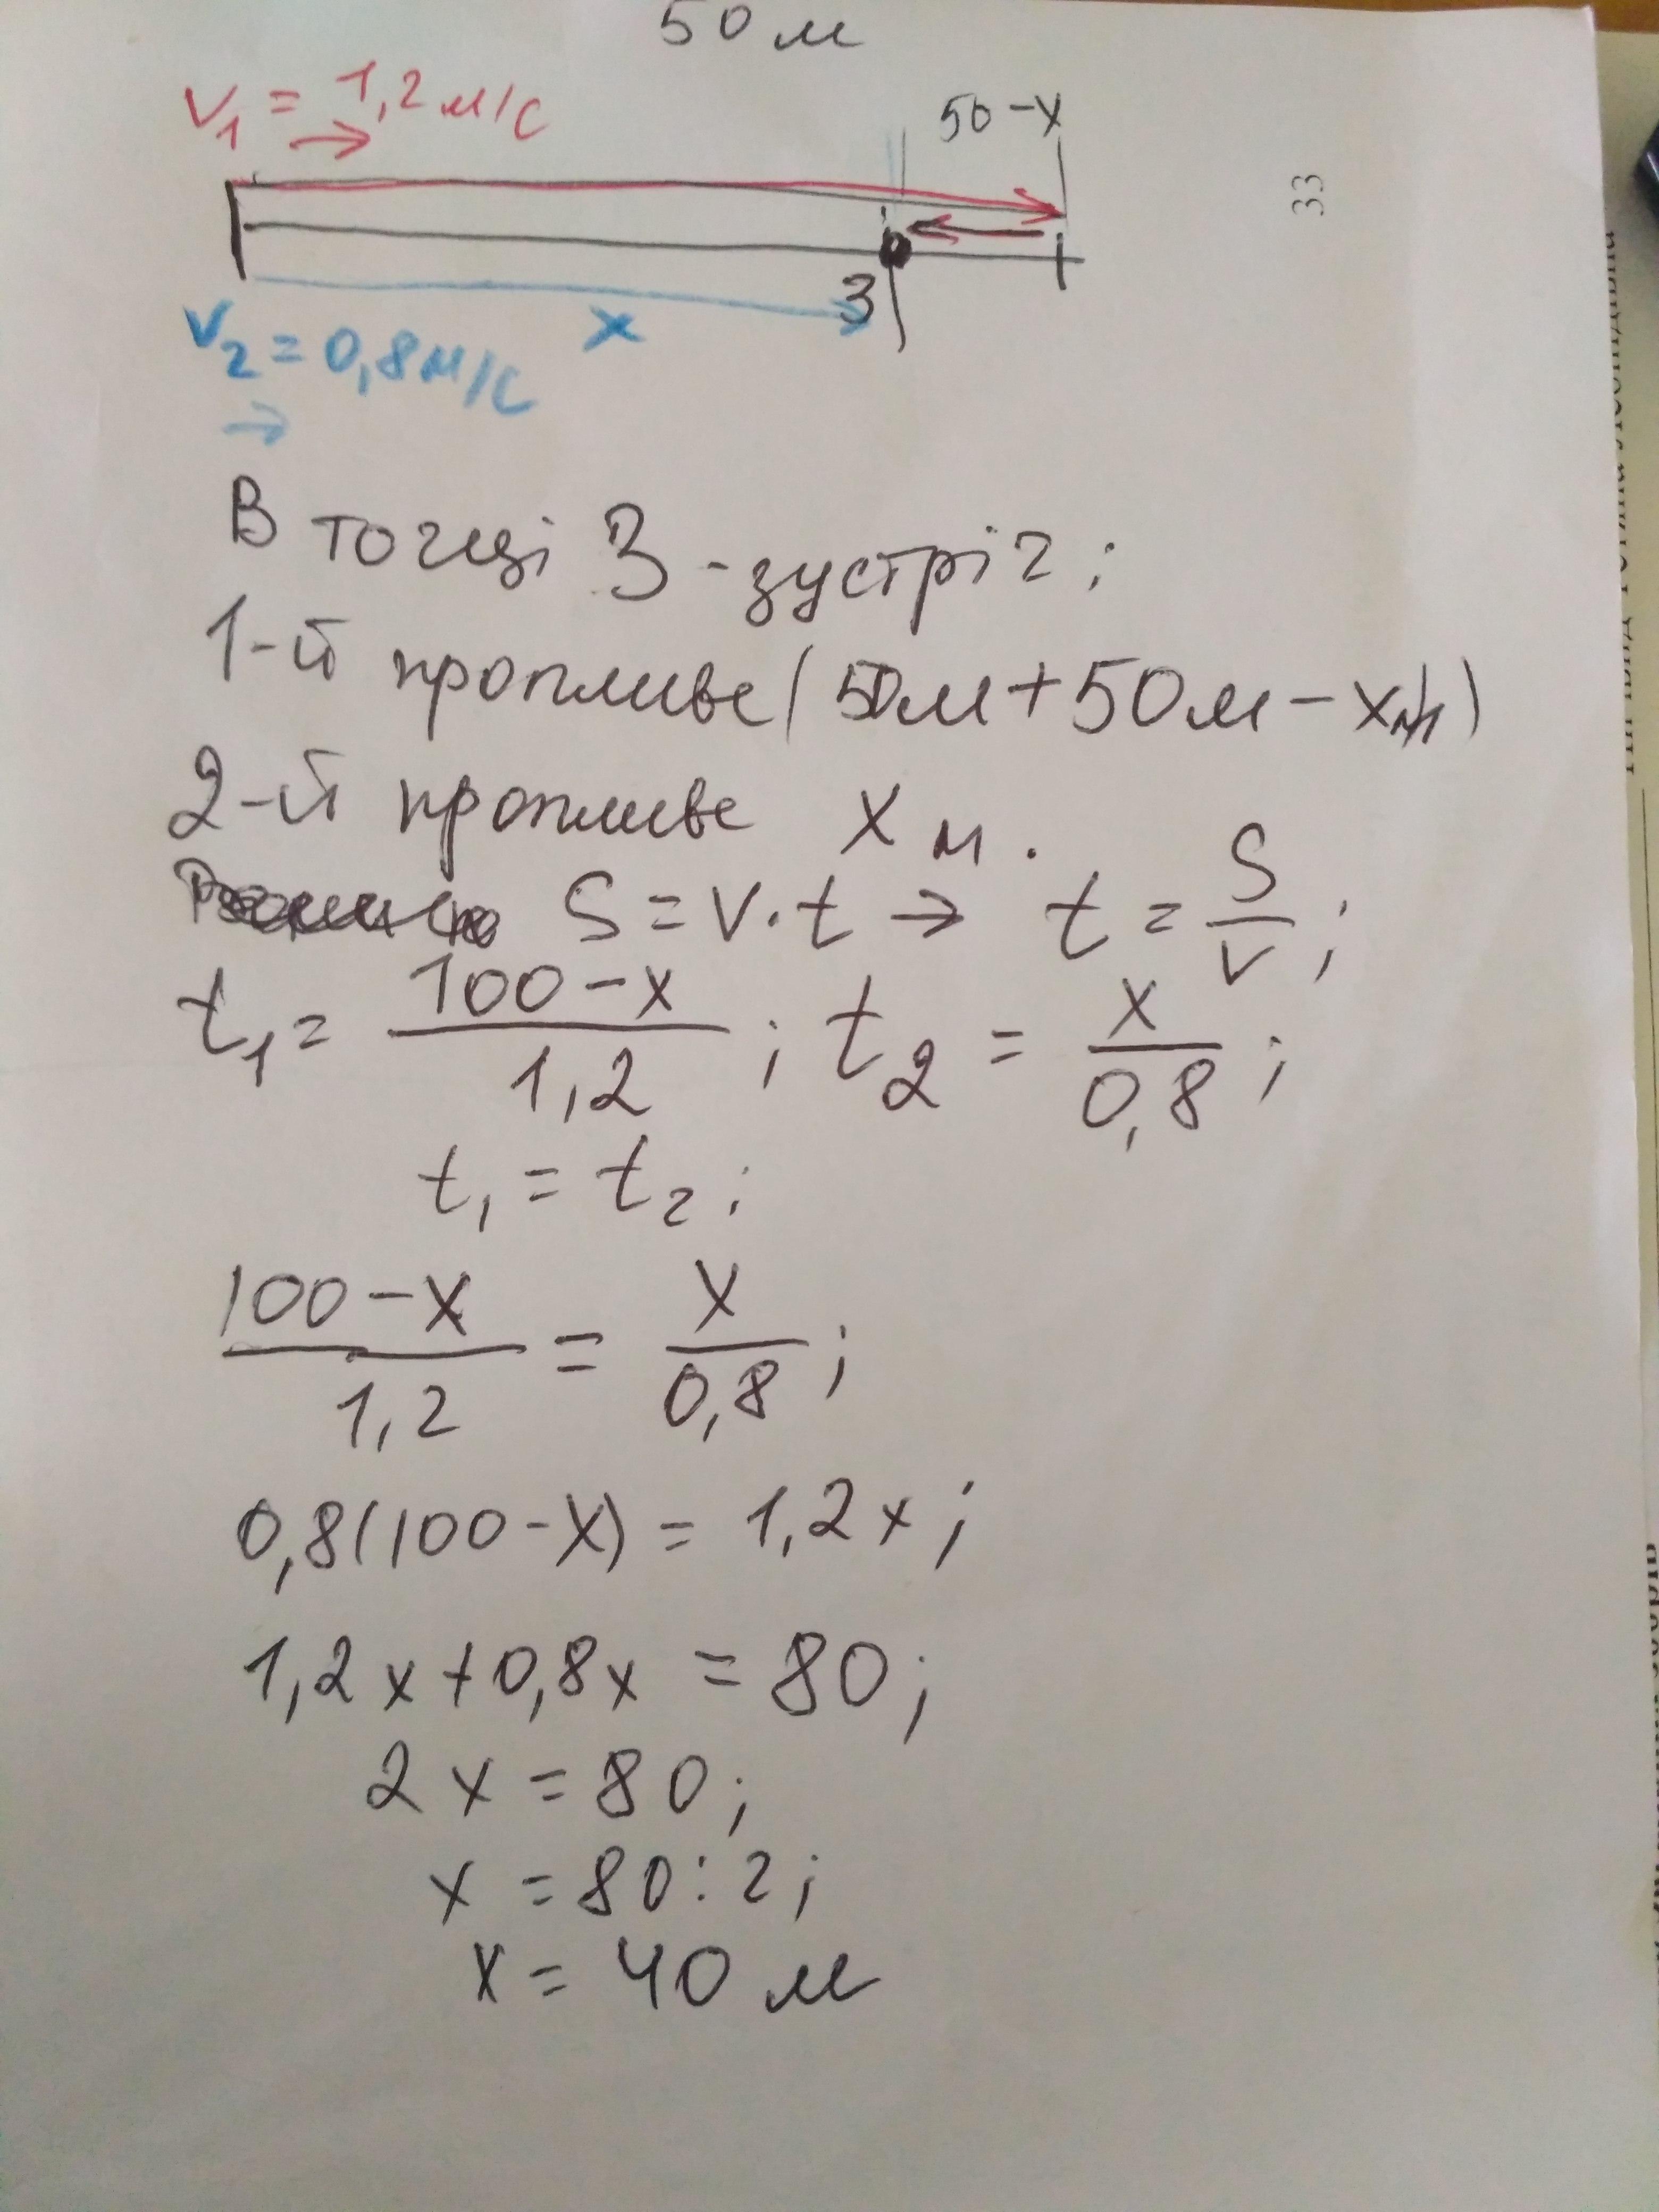 50 м
V₁ = 1,2 м/с
50 - x
33
З
x
V₂ = 0,8 м/с
В точці З - зустріч;
1-й пропливе (50м + 50м - xм)
2-й пропливе x м.
S = v · t → t = S/v ;
t₁ = (100 - x)/1,2 ; t₂ = x/0,8 ;
t₁ = t₂ ;
(100 - x)/1,2 = x/0,8 ;
0,8(100 - x) = 1,2x ;
1,2x + 0,8x = 80 ;
2x = 80 ;
x = 80 : 2 ;
x = 40 м